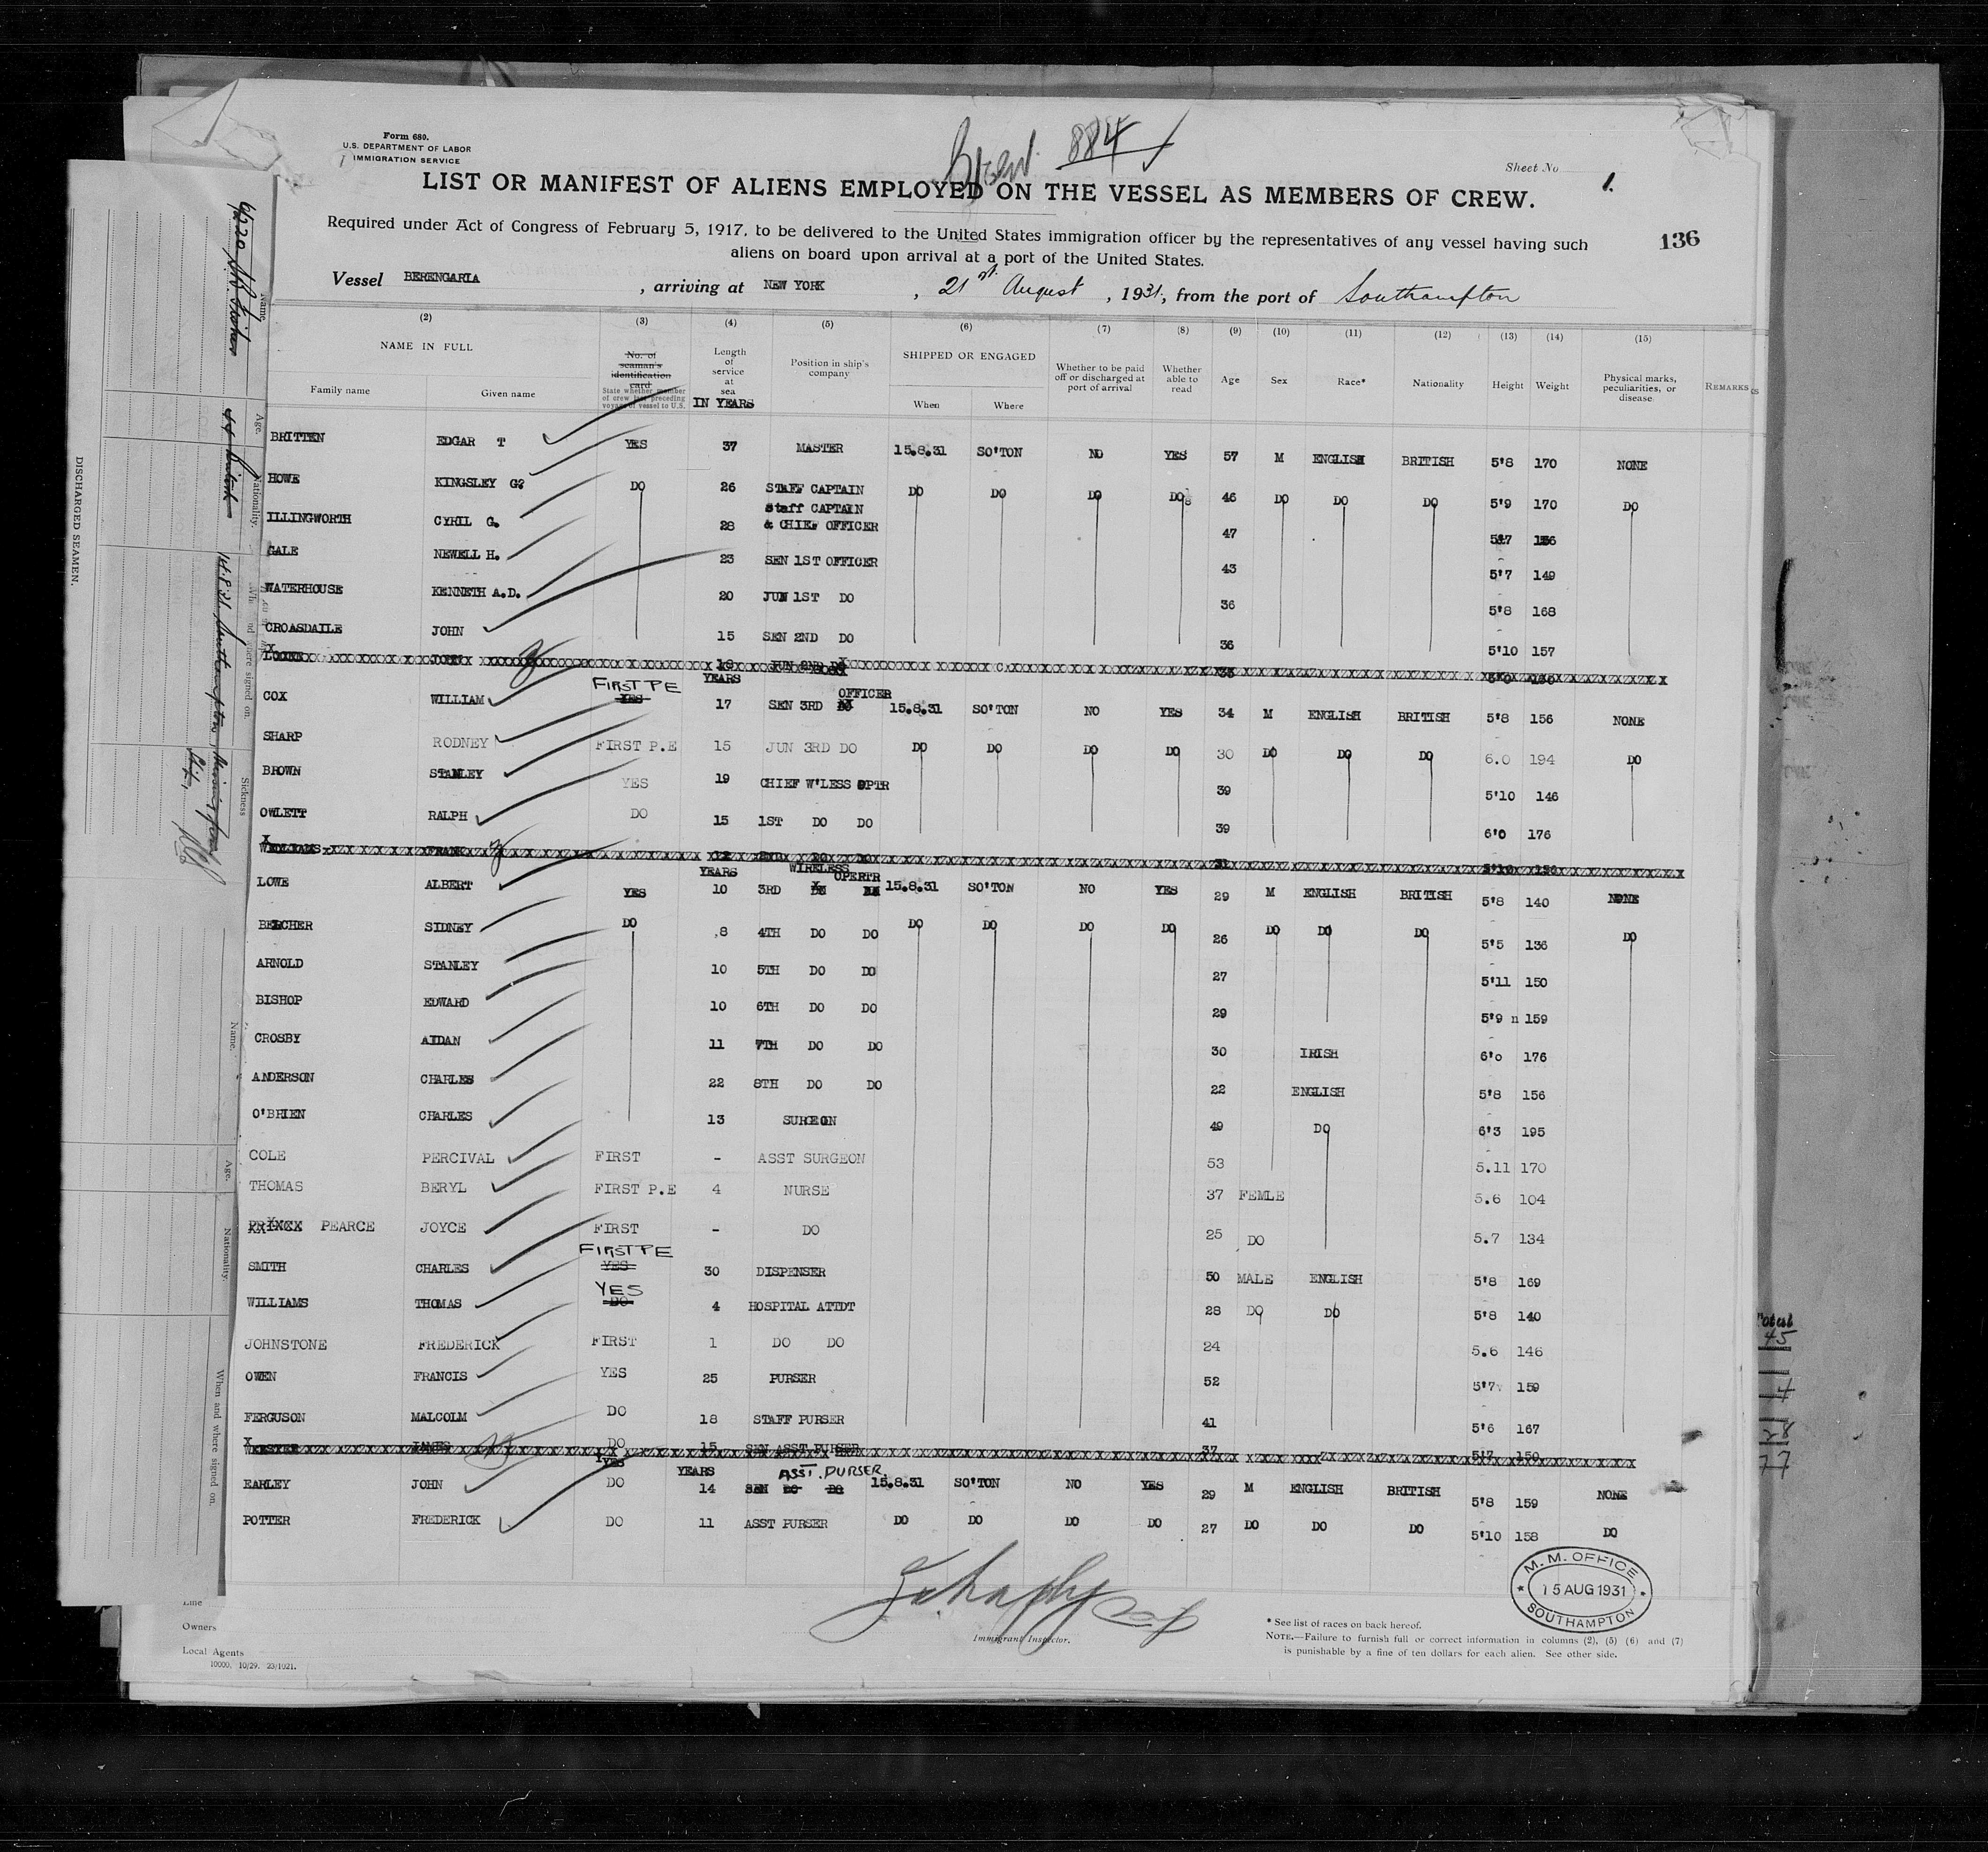 Form 680.
U.S. DEPARTMENT OF LABOR
IMMIGRATION SERVICE
884
Sheet No 1.
LIST OR MANIFEST OF ALIENS EMPLOYED ON THE VESSEL AS MEMBERS OF CREW.
136
Required under Act of Congress of February 5, 1917, to be delivered to the United States immigration officer by the representatives of any vessel having such
aliens on board upon arrival at a port of the United States.
Vessel BERENGARIA , arriving at NEW YORK , 21st August , 1931, from the port of Southampton
(2) (3) (4) (5) (6) (7) (8) (9) (10) (11) (12) (13) (14) (15)
NAME IN FULL
Family name Given name
No. of seaman's identification card
State whether member of crew last preceding voyage of vessel to U.S.
Length of service at sea
IN YEARS
Position in ship's company
SHIPPED OR ENGAGED
When Where
Whether to be paid off or discharged at port of arrival
Whether able to read
Age Sex Race* Nationality Height Weight
Physical marks, peculiarities, or disease
REMARKS
BRITTEN EDGAR T YES 37 MASTER 15.8.31 SO'TON NO YES 57 M ENGLISH BRITISH 5'8 170 NONE
HOWE KINGSLEY G? DO 26 STAFF CAPTAIN DO DO DO DO 46 DO DO DO 5'9 170 DO
ILLINGWORTH CYRIL G. 28 Staff CAPTAIN & CHIEF OFFICER 47 5'7
GALE NEWELL H. 23 SEN 1ST OFFICER 43 5'7 149
WATERHOUSE KENNETH A.D. 20 JUN 1ST DO 36 5'8 168
CROASDAILE JOHN 15 SEN 2ND DO 36 5'10 157
JUN 2ND DO
COX WILLIAM FIRST PE YES YEARS 17 SEN 3RD OFFICER 15.8.31 SO'TON NO YES 34 M ENGLISH BRITISH 5'8 156 NONE
SHARP RODNEY FIRST P.E 15 JUN 3RD DO DO DO DO DO 30 DO DO DO 6.0 194 DO
BROWN STANLEY YES 19 CHIEF W'LESS OPTR 39 5'10 146
OWLETT RALPH DO 15 1ST DO DO 39 6'0 176
WILLIAMS FRANK 12 2ND DO DO 31 5'10
LOWE ALBERT YES YEARS 10 3RD WIRELESS OPERTR 15.8.31 SO'TON NO YES 29 M ENGLISH BRITISH 5'8 140 NONE
BELCHER SIDNEY DO 8 4TH DO DO DO DO DO DO 26 DO DO DO 5'5 136 DO
ARNOLD STANLEY 10 5TH DO DO 27 5'11 150
BISHOP EDWARD 10 6TH DO DO 29 5'9 n 159
CROSBY AIDAN 11 7TH DO DO 30 IRISH 6'0 176
ANDERSON CHARLES 22 8TH DO DO 22 ENGLISH 5'8 156
O'BRIEN CHARLES 13 SURGEON 49 DO 6'3 195
COLE PERCIVAL FIRST - ASST SURGEON 53 5.11 170
THOMAS BERYL FIRST P.E 4 NURSE 37 FEMLE 5.6 104
PEARCE JOYCE FIRST - DO 25 DO 5.7 134
SMITH CHARLES FIRST PE YES 30 DISPENSER 50 MALE ENGLISH 5'8 169
WILLIAMS THOMAS YES DO 4 HOSPITAL ATTDT 28 DO DO 5'8 140
JOHNSTONE FREDERICK FIRST 1 DO DO 24 5.6 146
OWEN FRANCIS YES 25 PURSER 52 5'7 159
FERGUSON MALCOLM DO 18 STAFF PURSER 41 5'6 167
WEBSTER JAMES DO 15 SEN ASST PURSER 37 5'7 150
EARLEY JOHN YES DO YEARS 14 SEN DO DO ASST. PURSER 15.8.31 SO'TON NO YES 29 M ENGLISH BRITISH 5'8 159 NONE
POTTER FREDERICK DO 11 ASST PURSER DO DO DO DO 27 DO DO DO 5'10 158 DO
Immigrant Inspector.
M. M. OFFICE
15 AUG 1931
SOUTHAMPTON
* See list of races on back hereof.
NOTE.—Failure to furnish full or correct information in columns (2), (5) (6) and (7)
is punishable by a fine of ten dollars for each alien. See other side.
Line
Owners
Local Agents
10000. 10/29. 23/1021.
DISCHARGED SEAMEN.
Name.
Age.
44
Nationality.
British
When and where signed on.
Sickness
Name.
Age.
Nationality.
When and where signed on.
Total
45
4
28
77